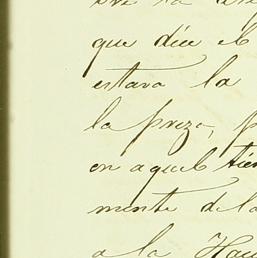 que dice el
estava la
la preza,
en aquel tiem
mente de la
a la Hau